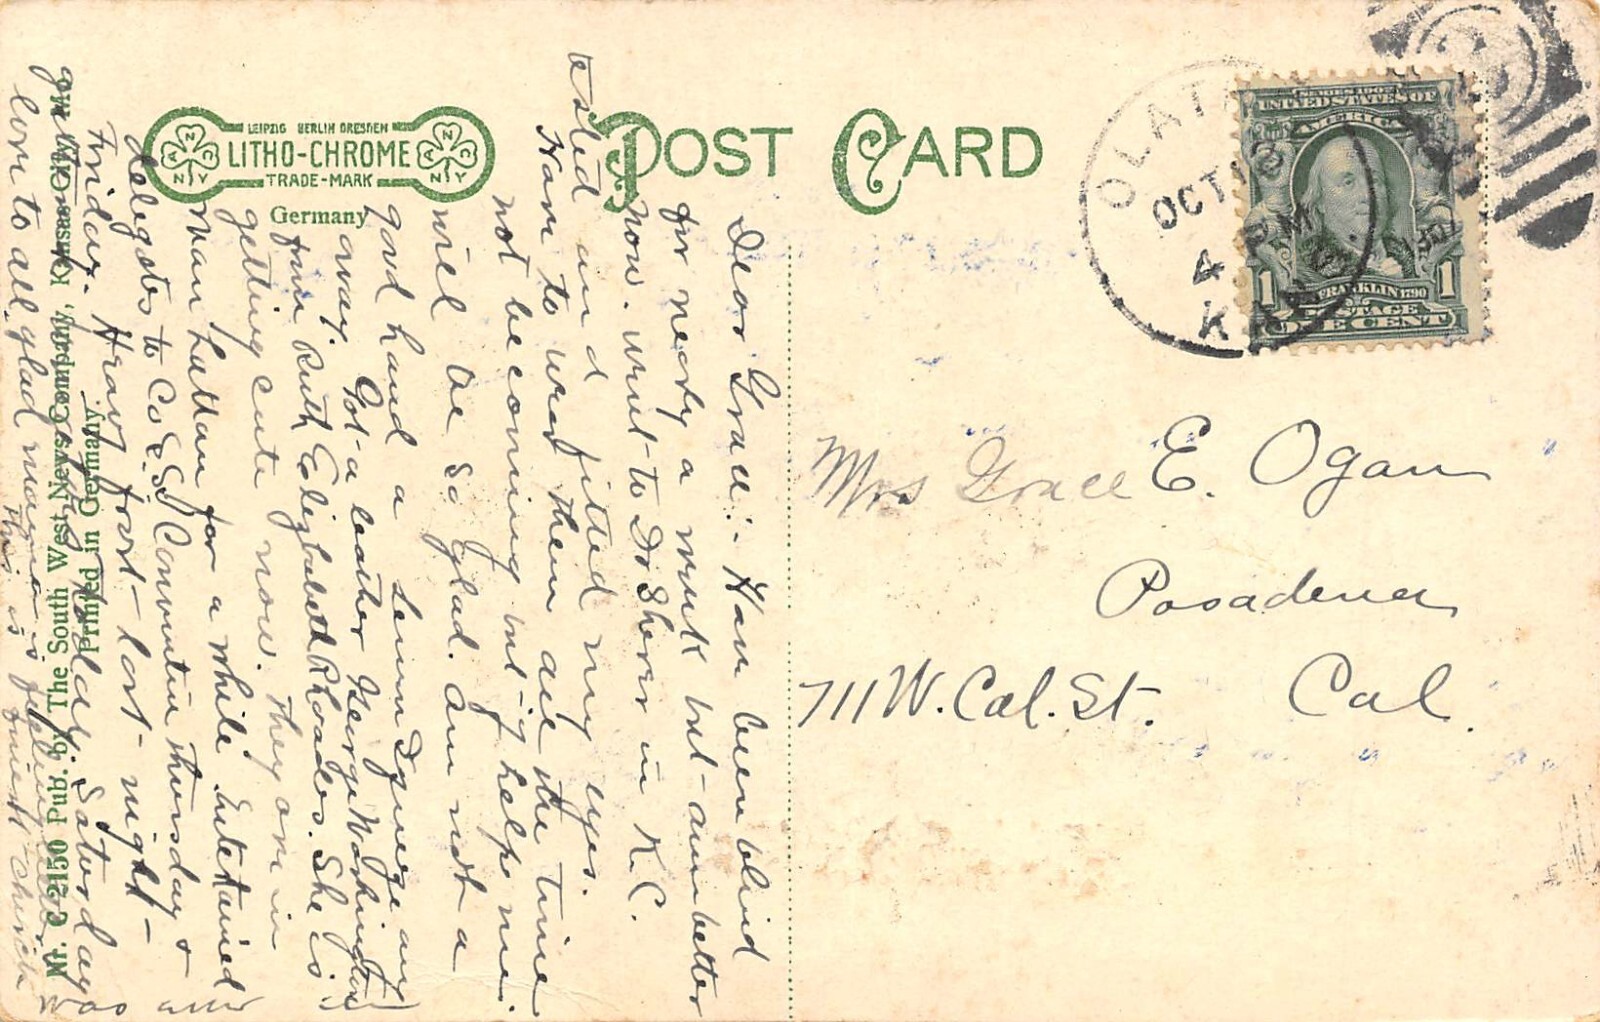 POST CARD
LEIPZIG BERLIN DRESDEN
LITHO-CHROME
TRADE-MARK
Germany
N N C N Y
Nr. C 2150 Pub. by The South West News Company, Kansas City, Mo.
Printed in Germany
OLAT
OCT 18
4 PM
KAN
SERIES 1902
UNITED STATES OF
AMERICA
FRANKLIN 1790
1 1
POSTAGE
ONE CENT
Mrs Grace E. Ogan
Pasadena
711 W. Cal. St. Cal.
Dear Grace:- Have been blind
for nearly a week but am better
now. went to Dr Sherer in K.C.
tested and fitted my eyes.
Have to wear them all the time
not becoming but if help me.
will be so glad. Am not a
good hand a Lemon Squeeze any
way. Got a leather George Washington
from Ruth Elizabeth Rhoades. She is
getting cute now. They are in
Manhattan for a while. Entertained
delegates to Co. S.S. Convention Thursday &
Friday. Heavy frost last night
Saturday
love to all. glad mama is feeling better
this is church
was